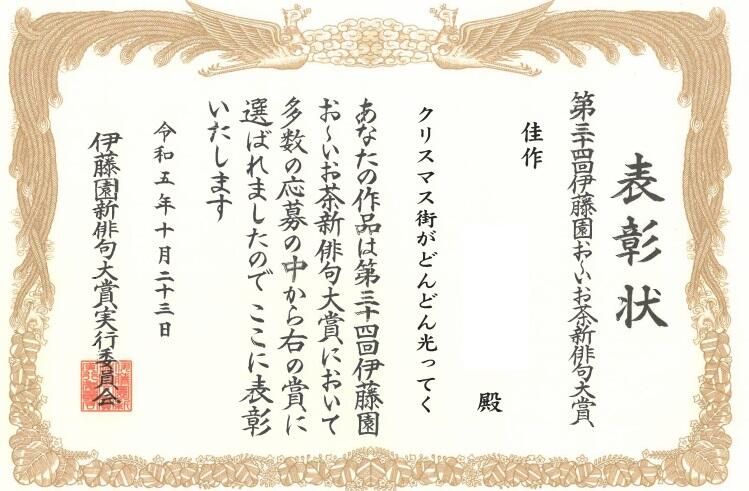 表彰状
第三十四回伊藤園お〜いお茶新俳句大賞
佳作
殿
クリスマス街がどんどん光ってく
あなたの作品は第三十四回伊藤園
お〜いお茶新俳句大賞において
多数の応募の中から右の賞に
選ばれましたので ここに表彰
いたします
令和五年十月二十三日
伊藤園新俳句大賞実行委員会